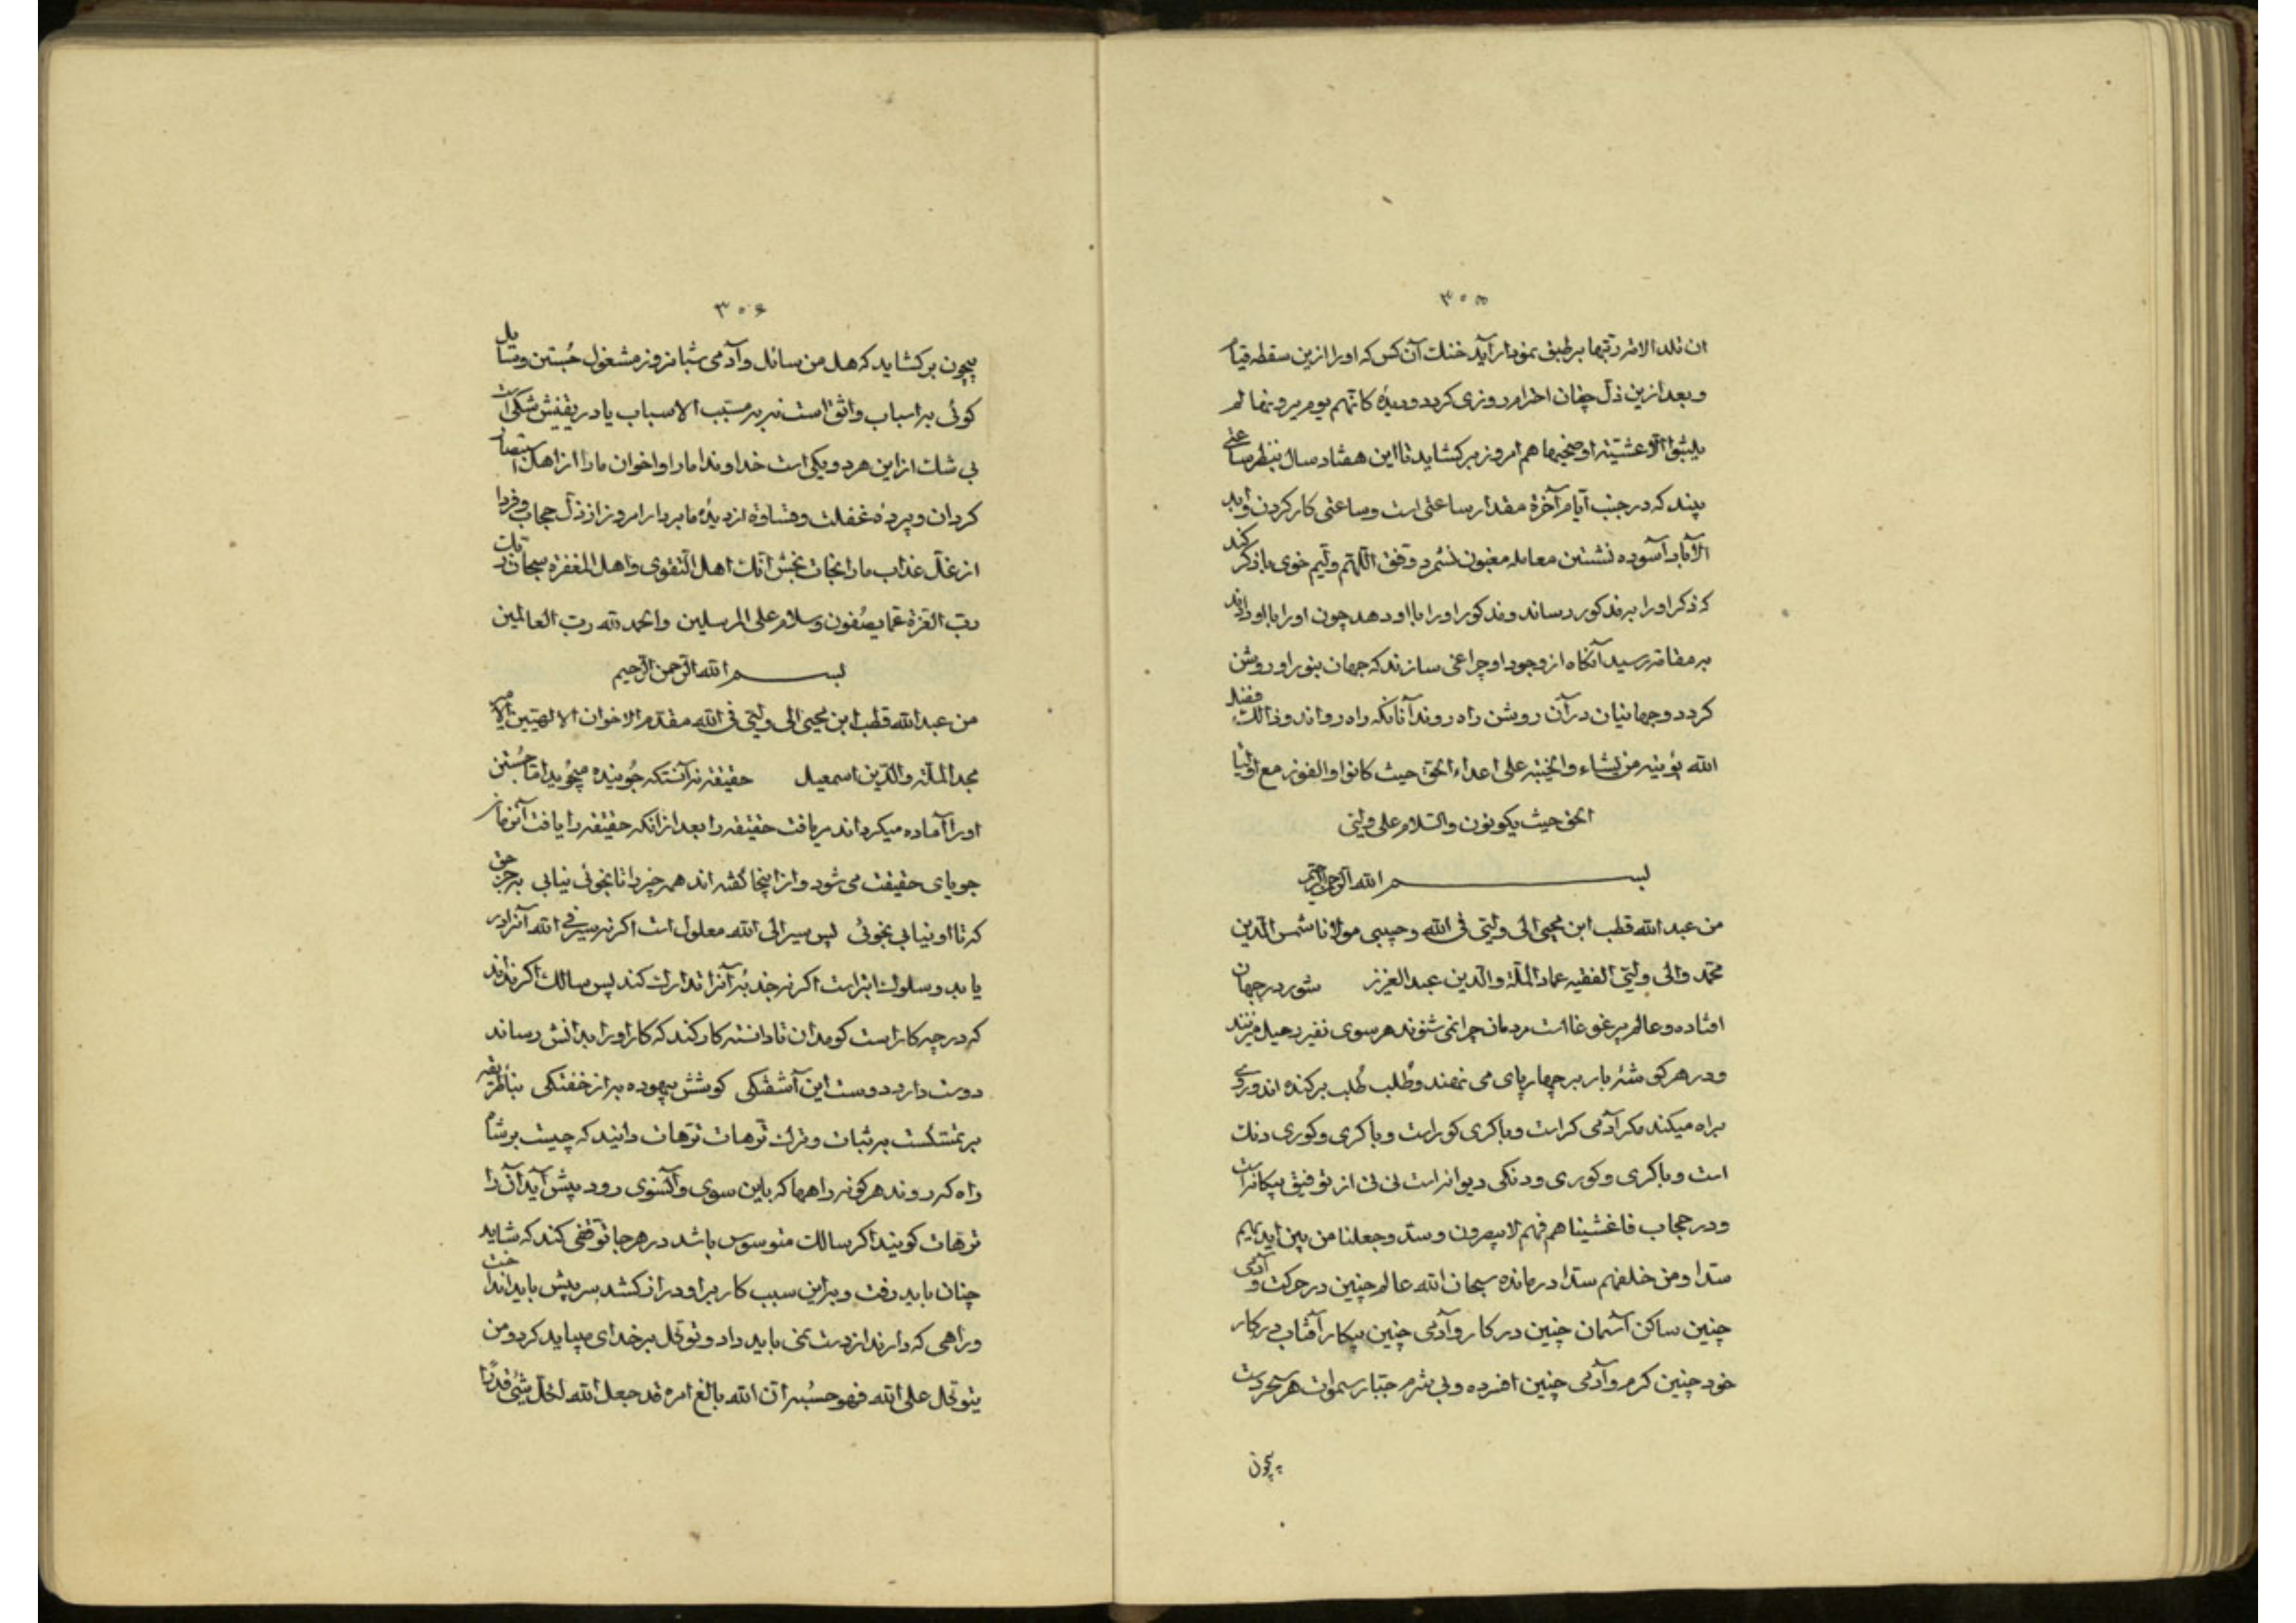 ۳۰۵
ان تلد الامة ربتها بر طبق نمودار آید خنك آن کس که او را ازین سقطه قیام
و بعد ازین ذل چنان احترام روزی کردد و دیدهٔ کانهم یوم یرونها لم
یلبثوا الا عشیة او ضحیها هم امروز برکشاید تا این هشتاد سال بنظر ساعتی
بیند که در جنب ایام آخرة مقدار ساعتی است و ساعتی کار کردن و ابد
الآباد آسوده نشستن معامله مغبون نشمرد وفق اللهم ولیم خوی با ذکر کند
که ذکر او را بمذکور رساند و مذکور او را باو دهد چون او را باو دادند
بر مقام رسید آنکاه از وجود او چراغی سازند که جهان بنور او روشن
کردد و جهانیان در آن روشن راه روند آنانکه راه روانند و ذالك فضل
الله یؤتیه من یشاء و الخیبة علی اعداء الحق حیث کانوا و الفوز مع اولیا
الحق حیث یکونون والسلام علی ولیی
بسم الله الرحمن الرحیم
من عبدالله قطب ابن محیی الی ولیی فی الله و حبیبی مولانا شمس الدین
محمد والی ولیی الفقیه عماد الملة والدین عبدالعزیز شور در جهان
افتاده و عالم پر غوغا است مردمان چرا نمی شنوند هر سوی نفیر رحیل میزنند
و در هر کو مشتر بار بر چهارپای می نهند و طلب طلب برکنده اند و روی
براه میکند مکر آدمی کر است و با کری کور است و با کری و کوری دنك
است و با کری و کوری و دنکی دیوانه است نی نی از توفیق بیکانه است
و در حجاب فاغشیناهم فهم لا یبصرون و سد وجعلنا من بین ایدیهم
سدا و من خلفهم سدا در مانده سبحان الله عالم چنین در حرکت و آدمی
چنین ساکن آسمان چنین در کار و آدمی چنین بیکار آفتاب در کار
خود چنین کرم و آدمی چنین افسرده و بی شرم جبار سموات هر سحر دست
بیچون
۳۰۶
بیچون برکشاید که هل من سائل و آدمی شبانروز مشغول جستن و مسایل
کوئی بر اسباب واثق است نه بر مسبب الاسباب یا در یقینش شکی است
بی شك از این هر دو یکی است خداوندا ما را و اخوان ما را از اهل استبصار
کردان و پردهٔ غفلت و غشاوة از دیدهٔ ما بردار امروز از ذل حجاب و فردا
از غل عذاب ما را نجات بخش انك اهل التقوی و اهل المغفرة سبحان ربك
رب العزة عما یصفون و سلام علی المرسلین والحمد لله رب العالمین
بسم الله الرحمن الرحیم
من عبدالله قطب ابن محیی الی ولیی فی الله مقدم الاخوان الالهیین الامیر
مجد الملة والدین اسمعیل حقیقة نه آنستکه جوینده میجوید اما جستن
او را آماده میکرداند بریافت حقیقة را بعد از آنکه حقیقة را یافت آنزمان
جویای حقیقت می شود و از اینجا کفته اند همه چیز را تا نجوئی نیابی بجز حق
که تا او نیابی نجوئی پس سیر الی الله معلول است اکر نه سیر فی الله آنرا در
یابد و سلوك ابتر است اکر نه جذبه آنرا تدارك کند پس سالك اکر نداند
که در چه کار است کو مدان نادانسته کار کند که کار او را بدانش رساند
دوست دارد دوست این آشفتکی کوشش بیهوده به از خفتکی بناطریقه
بر تمسکست بر ثبات و ترك ترهات ترهات دانید که چیست بر شاه
راه که روند هر کونه راهها که باین سوی و آنسوی رود پیش آید آن را
ترهات کویند اکر سالك متوسوس باشد در هر جا توقفی کند که شاید
چنان باید رفت و براین سبب کار بر او دراز کشد سر پیش باید انداخت
و راهی که دارند از دست نمی باید داد و توکل بر خدای میباید کرد و من
یتوکل علی الله فهو حسبه ان الله بالغ امره قد جعل الله لکل شیء قدرا